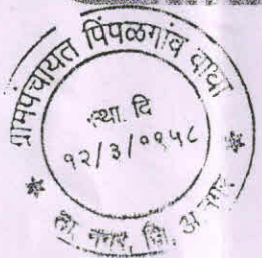 ग्रामपंचायत पिंपळगांव वाघा
स्था. दि
१२/३/०९५८
ता. नगर, जि. अ.नगर